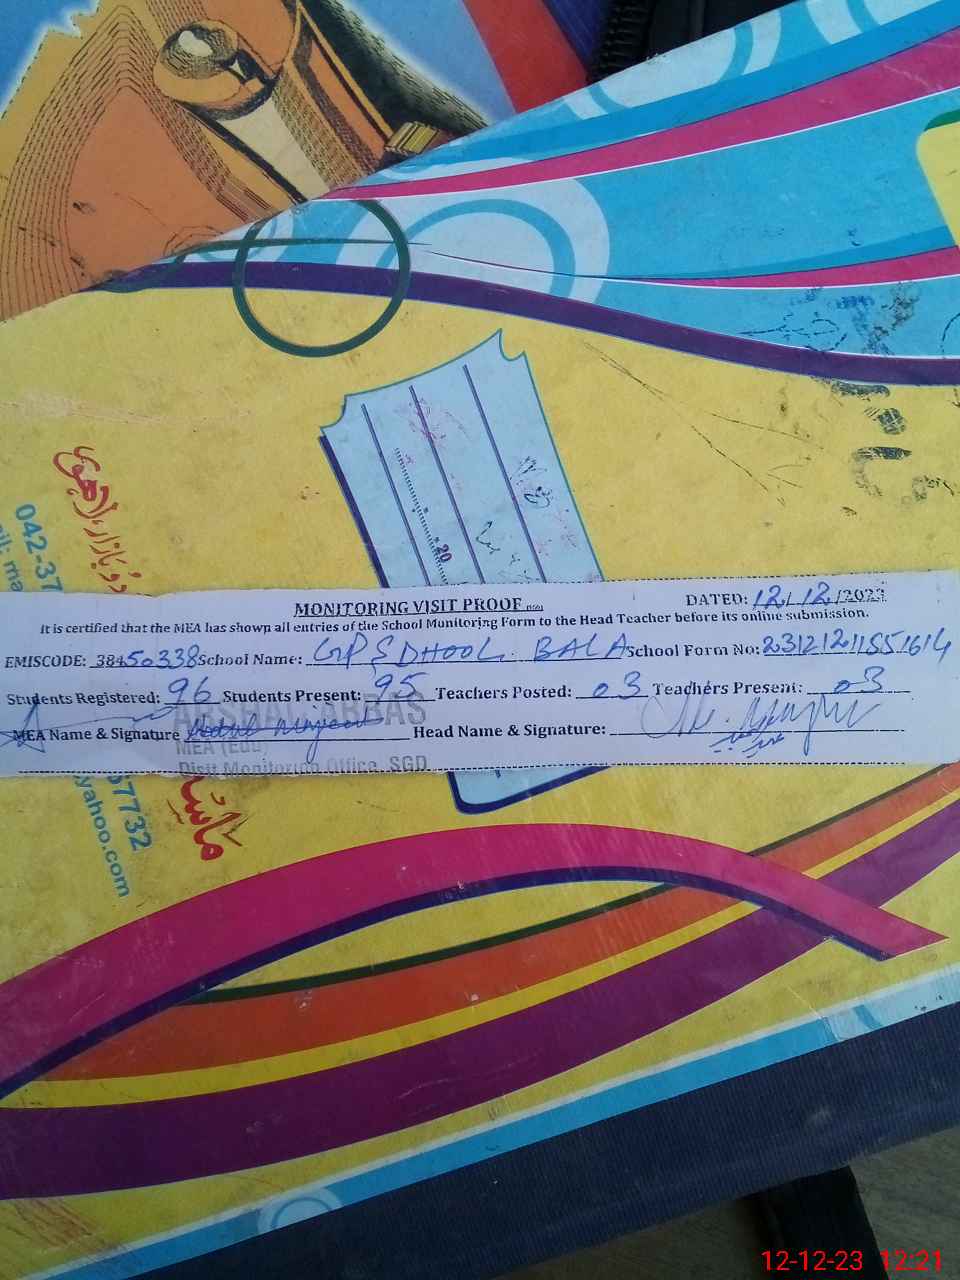 دو بازار، لاہور
042-37
7732
yahoo.com
20
MONITORING VISIT PROOF
DATED: 12/12/2023
It is certified that the MEA has shown all entries of the School Monitoring Form to the Head Teacher before its online submission.
EMISCODE: 38450338 School Name: GPS DHOOL BALA School Form No: 23121211551614
Students Registered: 96 Students Present: 95 Teachers Posted: 03 Teachers Present: 03
ABBAS
MEA Name & Signature Head Name & Signature:
MEA (Edu)
Distt Monitoring Office, SGD
12-12-23 12:21